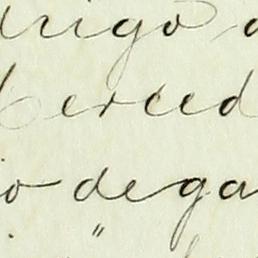 drigo
Merced
io de ga
"